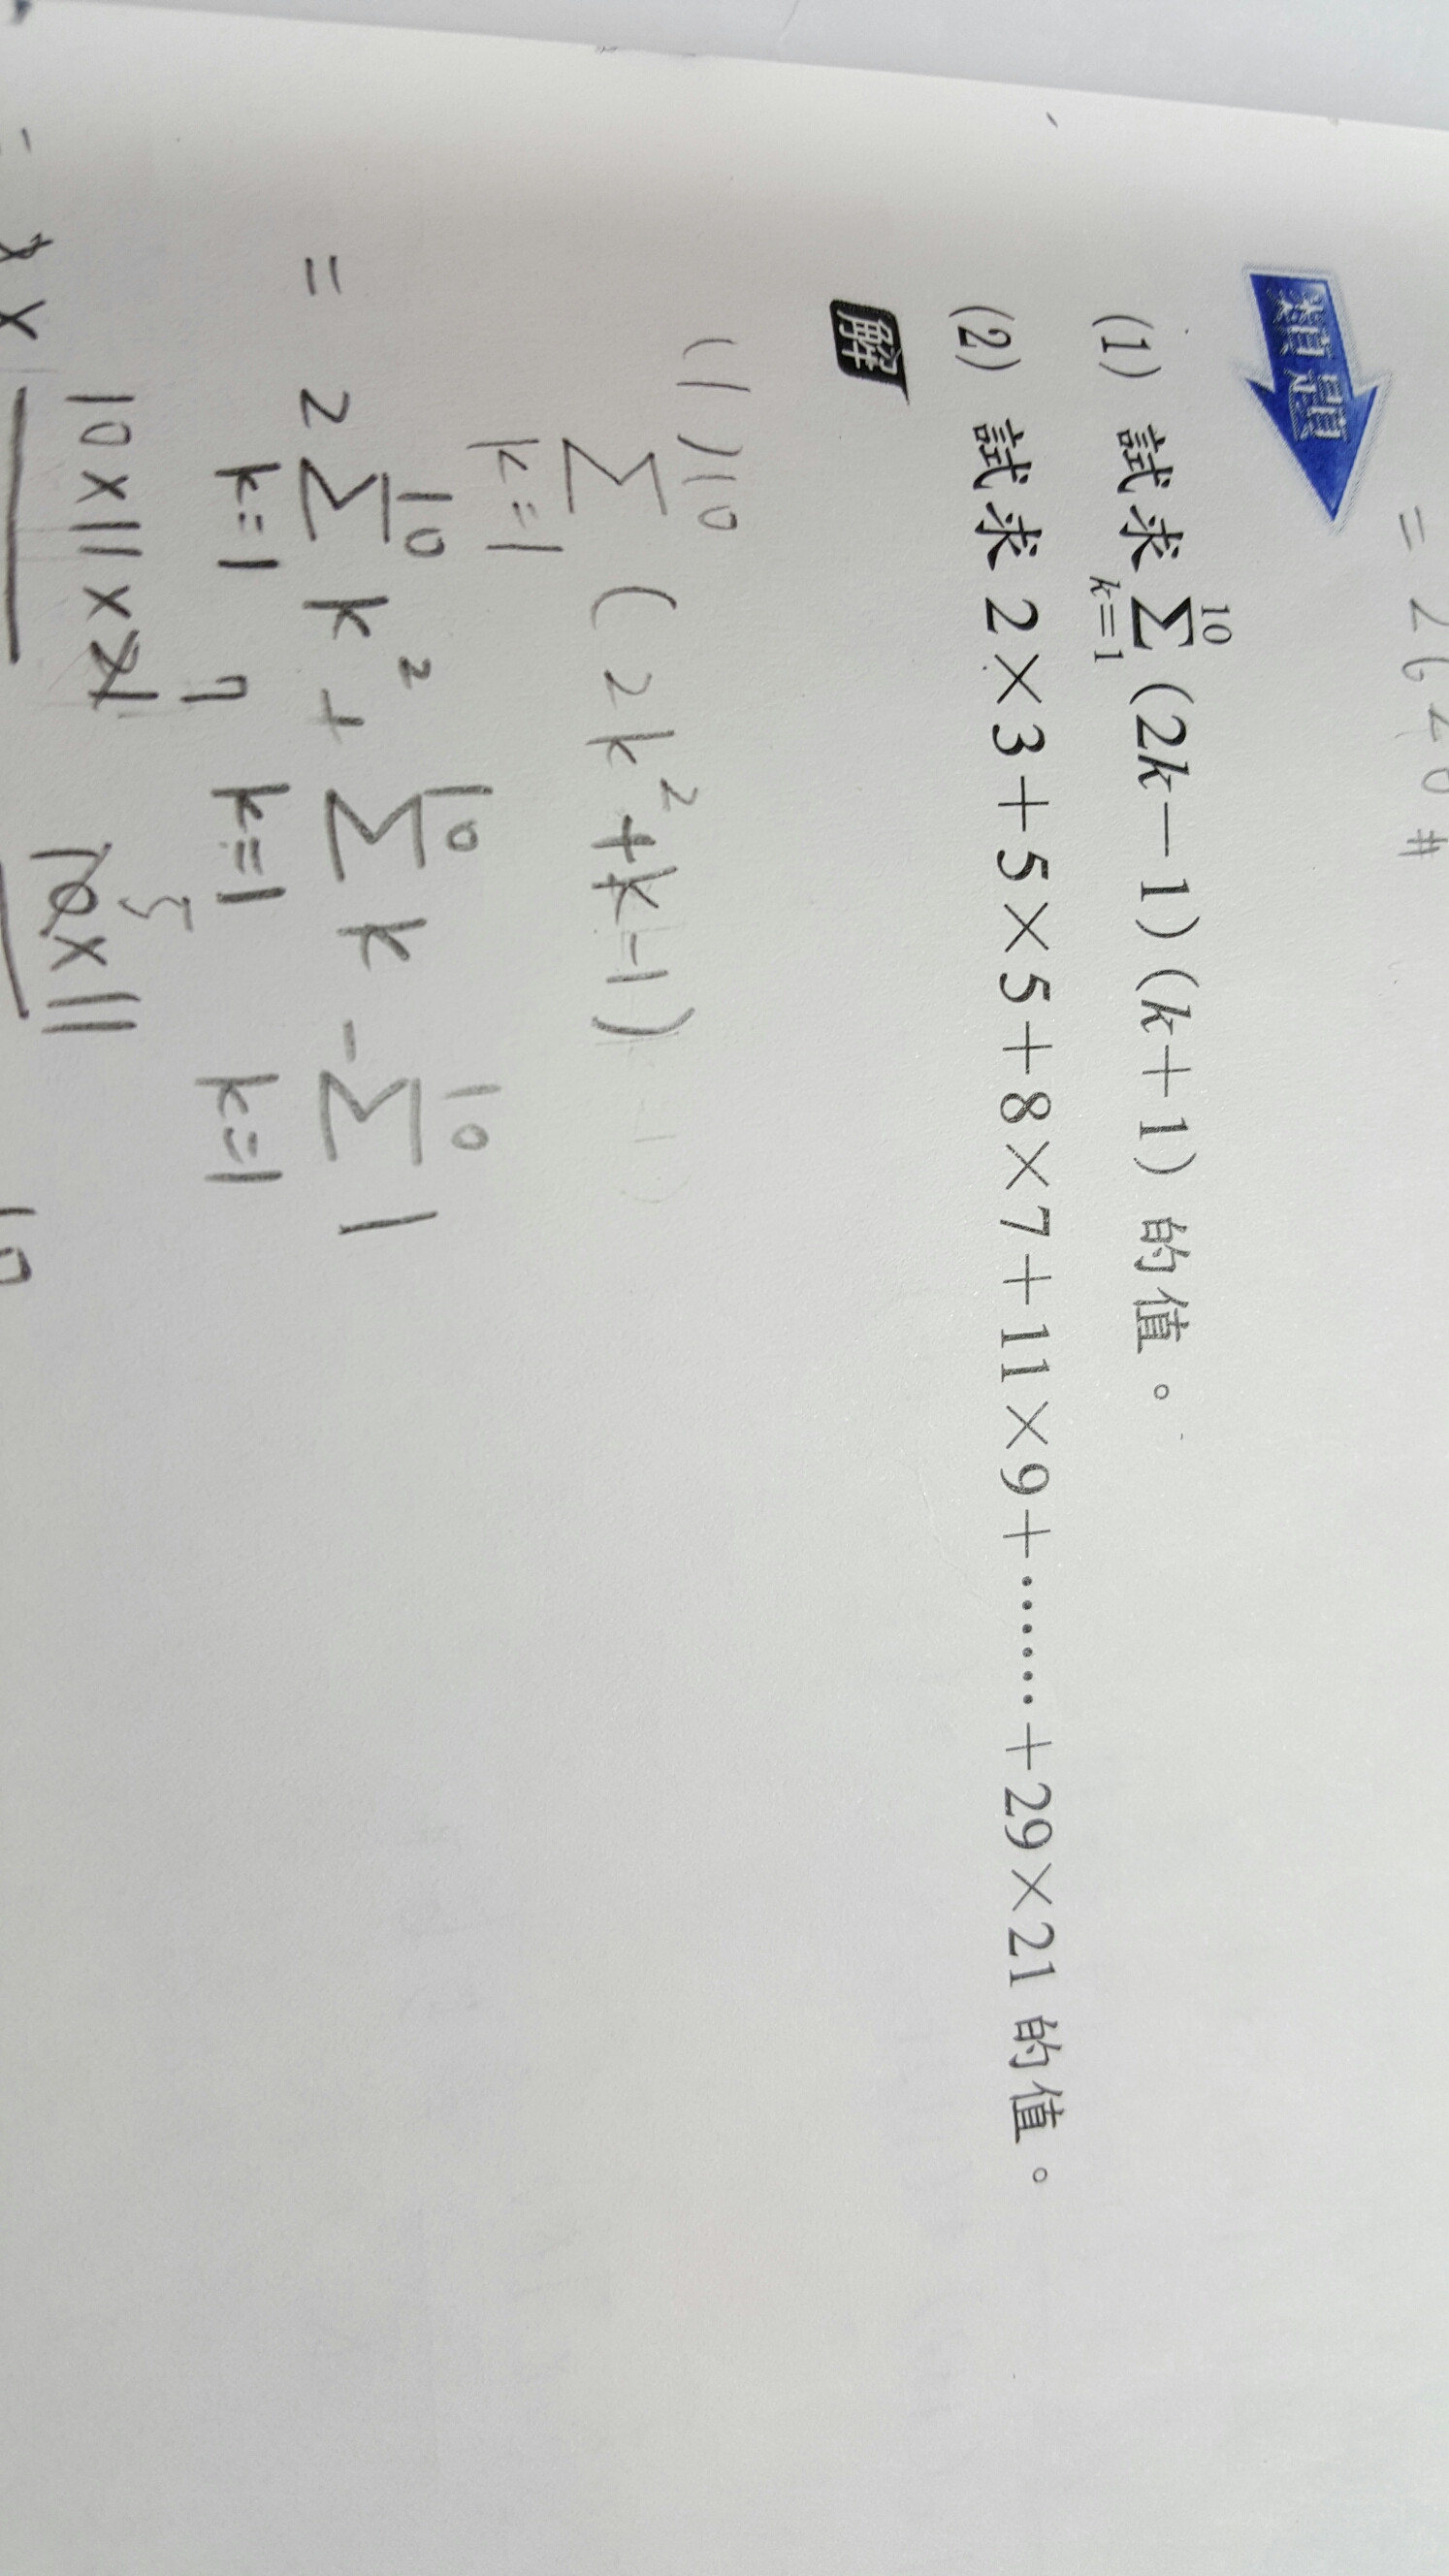 = 2640 #
類題
(1) 試求 $\sum_{k=1}^{10}$ (2k−1)(k+1) 的值。
(2) 試求 2×3+5×5+8×7+11×9+……+29×21 的值。
解
(1) $\sum_{k=1}^{10}$ (2k²+k−1)
= 2 $\sum_{k=1}^{10}$ k² + $\sum_{k=1}^{10}$ k − $\sum_{k=1}^{10}$ 1
7 5
10×11×21 10×11
= 2 × 10